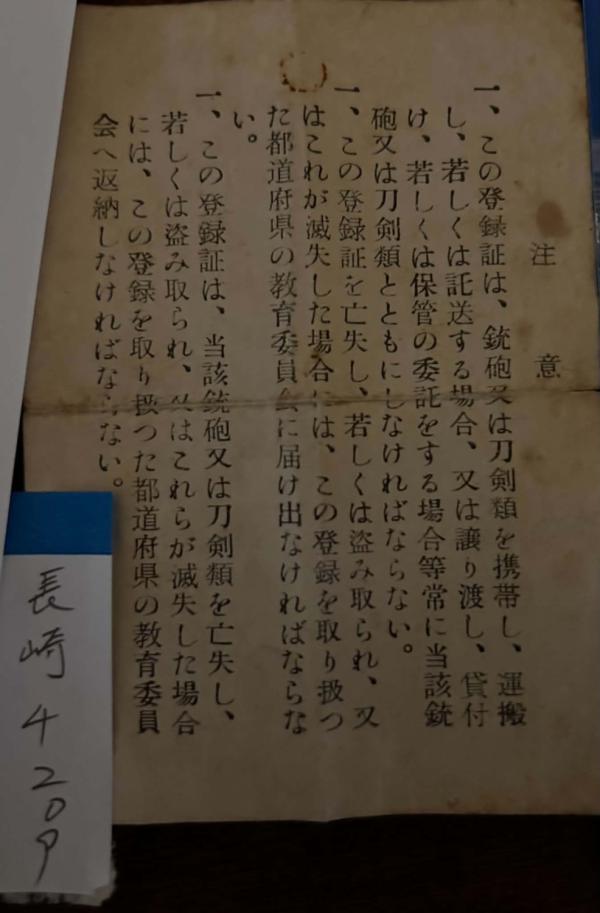 注意
一、この登録証は、銃砲又は刀剣類を携帯し、運搬
し、若しくは託送する場合、又は譲り渡し、貸付
け、若しくは保管の委託をする場合等常に当該銃
砲又は刀剣類とともにしなければならない。
一、この登録証を亡失し、若しくは盗み取られ、又
はこれが滅失した場合には、この登録を取り扱つ
た都道府県の教育委員会に届け出なければならな
い。
一、この登録証は、当該銃砲又は刀剣類を亡失し、
若しくは盗み取られ、又はこれらが滅失した場合
には、この登録を取り扱つた都道府県の教育委員
会へ返納しなければならない。
長崎4209